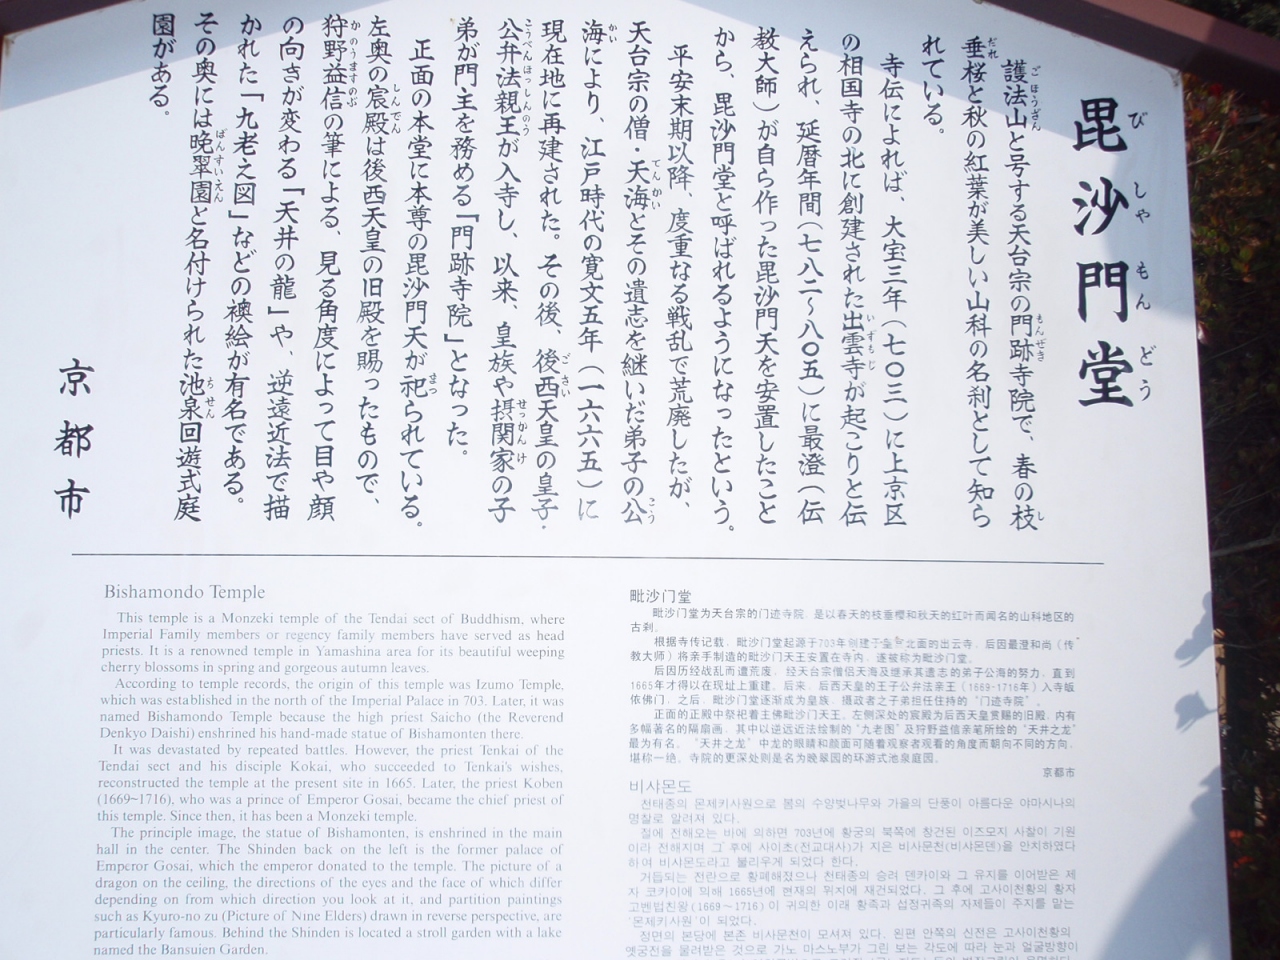 毘沙門堂
びしゃもんどう
護法山と号する天台宗の門跡寺院で、春の枝
垂桜と秋の紅葉が美しい山科の名刹として知ら
れている。
寺伝によれば、大宝三年(七〇三)に上京区
の相国寺の北に創建された出雲寺が起こりと伝
えられ、延暦年間(七八二～八〇五)に最澄(伝
教大師)が自ら作った毘沙門天を安置したこと
から、毘沙門堂と呼ばれるようになったという。
平安末期以降、度重なる戦乱で荒廃したが、
天台宗の僧・天海とその遺志を継いだ弟子の公
海により、江戸時代の寛文五年(一六六五)に
現在地に再建された。その後、後西天皇の皇子・
公弁法親王が入寺し、以来、皇族や摂関家の子
弟が門主を務める「門跡寺院」となった。
正面の本堂に本尊の毘沙門天が祀られている。
左奥の宸殿は後西天皇の旧殿を賜ったもので、
狩野益信の筆による、見る角度によって目や顔
の向きが変わる「天井の龍」や、逆遠近法で描
かれた「九老之図」などの襖絵が有名である。
その奥には晩翠園と名付けられた池泉回遊式庭
園がある。
京都市
Bishamondo Temple
This temple is a Monzeki temple of the Tendai sect of Buddhism, where
Imperial Family members or regency family members have served as head
priests. It is a renowned temple in Yamashina area for its beautiful weeping
cherry blossoms in spring and gorgeous autumn leaves.
According to temple records, the origin of this temple was Izumo Temple,
which was established in the north of the Imperial Palace in 703. Later, it was
named Bishamondo Temple because the high priest Saicho (the Reverend
Denkyo Daishi) enshrined his hand-made statue of Bishamonten there.
It was devastated by repeated battles. However, the priest Tenkai of the
Tendai sect and his disciple Kokai, who succeeded to Tenkai's wishes,
reconstructed the temple at the present site in 1665. Later, the priest Koben
(1669~1716), who was a prince of Emperor Gosai, became the chief priest of
this temple. Since then, it has been a Monzeki temple.
The principle image, the statue of Bishamonten, is enshrined in the main
hall in the center. The Shinden back on the left is the former palace of
Emperor Gosai, which the emperor donated to the temple. The picture of a
dragon on the ceiling, the directions of the eyes and the face of which differ
depending on from which direction you look at it, and partition paintings
such as Kyuro-no zu (Picture of Nine Elders) drawn in reverse perspective, are
particularly famous. Behind the Shinden is located a stroll garden with a lake
named the Bansuien Garden.
毗沙门堂
毗沙门堂为天台宗的门迹寺院，是以春天的枝垂樱和秋天的红叶而闻名的山科地区的
古刹。
根据寺传记载，毗沙门堂起源于703年创建于皇宫北面的出云寺，后因最澄和尚（传
教大师）将亲手制造的毗沙门天王安置在寺内，遂被称为毗沙门堂。
后因历经战乱而遭荒废，经天台宗僧侣天海及继承其遗志的弟子公海的努力，直到
1665年才得以在现址上重建。后来，后西天皇的王子公弁法亲王（1669-1716年）入寺皈
依佛门，之后，毗沙门堂逐渐成为皇族、摄政者之子弟担任住持的“门迹寺院”。
正面的正殿中祭祀着主佛毗沙门天王。左侧深处的宸殿为后西天皇赏赐的旧殿，内有
多幅著名的隔扇画，其中以逆远近法绘制的“九老图”及狩野益信亲笔所绘的“天井之龙”
最为有名。“天井之龙”中龙的眼睛和颜面可随着观察者观看的角度而朝向不同的方向，
堪称一绝。寺院的更深处则是名为晚翠园的环游式池泉庭园。
京都市
비사몬도
천태종의 몬제키사원으로 봄의 수양벚나무와 가을의 단풍이 아름다운 야마시나의
명찰로 알려져 있다.
절에 전해오는 바에 의하면 703년에 황궁의 북쪽에 창건된 이즈모지 사찰이 기원
이라 전해지며 그 후에 사이초(전교대사)가 지은 비사문천(비샤몬텐)을 안치하였다
하여 비샤몬도라고 불리우게 되었다 한다.
거듭되는 전란으로 황폐해졌으나 천태종의 승려 덴카이와 그 유지를 이어받은 제
자 코카이에 의해 1665년에 현재의 위치에 재건되었다. 그 후에 고사이천황의 황자
고벤법친왕(1669～1716)이 귀의한 이래 황족과 섭정귀족의 자제들이 주지를 맡는
'몬제키사원'이 되었다.
정면의 본당에 본존 비사문천이 모셔져 있다. 왼편 안쪽의 신전은 고사이천황의
옛궁전을 물려받은 것으로 가노 마스노부가 그린 보는 각도에 따라 눈과 얼굴방향이